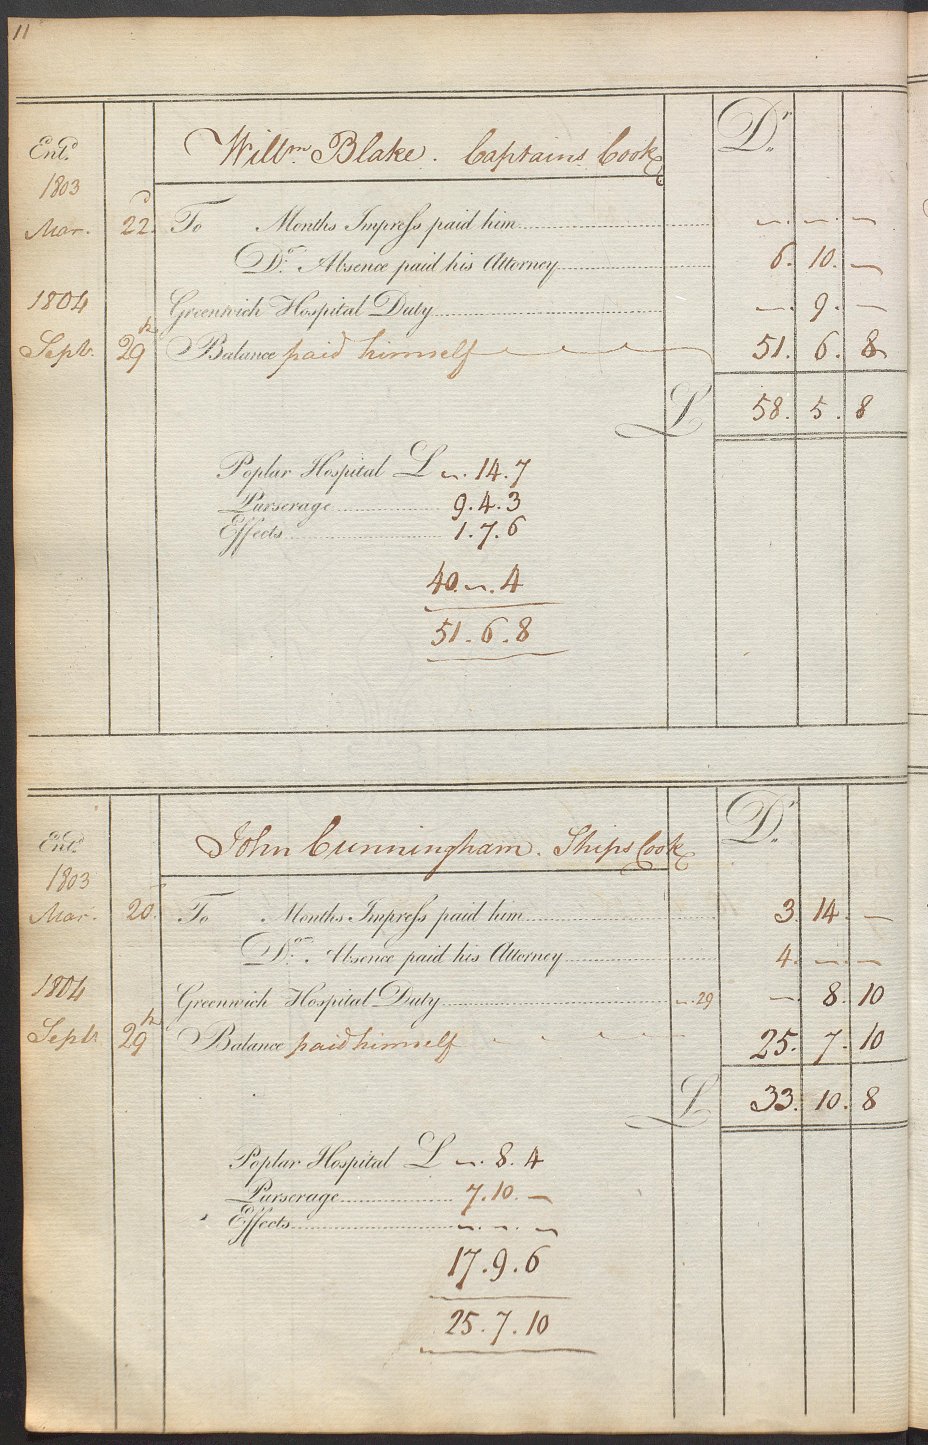 11
Entd. Willm. Blake. Captains Cook Dr.
1803
Mar. 22d. To Months Impress paid him — . — . —
Do. Absence paid his Attorney 6. 10. —
1804 Greenwich Hospital Duty — . 9. —
Septr. 29th Balance paid himself 51. 6. 8
L 58. 5. 8
Poplar Hospital L —. 14. 7
Purserage 9. 4. 3
Effects 1. 7. 6
40. —. 4
51. 6. 8
Entd. John Cunningham. Ships Cook Dr.
1803
Mar. 20. To Months Impress paid him 3. 14. —
Do. Absence paid his Attorney 4. —. —
1804 Greenwich Hospital Duty —. 29 —. 8. 10
Septr. 29th Balance paid himself 25. 7. 10
L 33. 10. 8
Poplar Hospital L —. 8. 4
Purserage 7. 10. —
Effects —. —. —
17. 9. 6
25. 7. 10